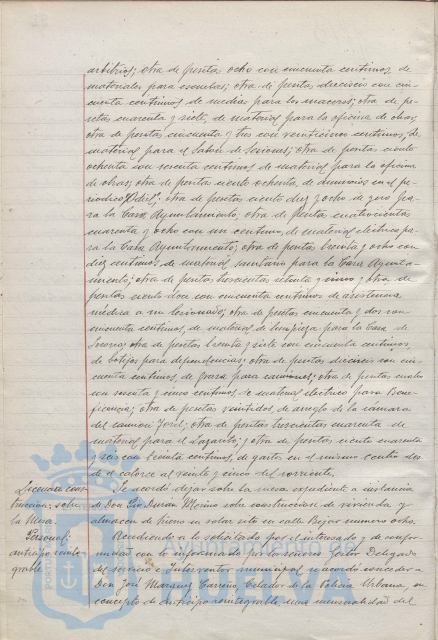 arbitrios; otra de pesetas ocho con cincuenta centimos de
materiales para escuelas; otra de pesetas dieciseis con cin-
cuenta centimos de medias para los maceros; otra de pe-
setas cuarenta y siete, de material para la oficina de obras;
otra de pesetas cincuenta y tres con veinticinco centimos, de
material para el Salon de Sesiones; otra de pesetas ciento
ochenta con sesenta centimos de material para la oficina
de obras; otra de pesetas ciento ochenta de anuncios en el pe-
riodico Odiel; otra de pesetas ciento diez y ocho de yeso pa-
ra la Casa Ayuntamiento; otra de pesetas cuatrocientas
cuarenta y ocho con un centimo, de material electrico pa-
ra la Casa Ayuntamiento; otra de pesetas treinta y ocho con
diez centimos de material sanitario para la Casa Ayunta-
miento; otra de pesetas trescientas setenta y cinco y otra de
pesetas ciento doce con cincuenta centimos de asistencia
médica a un lesionado; otra de pesetas cincuenta y dos con
cincuenta centimos, de material de limpieza para la Casa de
Socorro; otra de pesetas treinta y siete con cincuenta centimos
de botijos para dependencias; otra de pesetas dieciseis con cin-
cuenta centimos, de grasa para camiones; otra de pesetas
con sesenta y cinco centimos de material electrico para Bene-
ficencia; otra de pesetas veintidos, de arreglo de la cámara
del camion Ford; otra de pesetas trescientas cuarenta de
material para el Lazareto; y otra de pesetas ciento cuarenta
y seis con treinta centimos, de gastos en el mismo Centro des-
de el catorce al veinte y cinco del corriente.
Licencia cons-
truccion: sobre
la Mesa.
Se acordó dejar sobre la mesa expediente a instancia
de Don Pio Duran Merino sobre construccion de vivienda y
almacen de hierro en solar sito en calle Bejar numero ocho.
Personal:
anticipo reinte-
grable
Accediendo a lo solicitado por el interesado y de confor-
midad con lo informado por los señores Gestor Delegado
del servicio e Interventor municipal se acordó conceder a
Don José Marquez Carreño, Celador de la Policia Urbana, en
concepto de anticipo reintegrable una mensualidad del
Ayuntamiento de
HUELVA